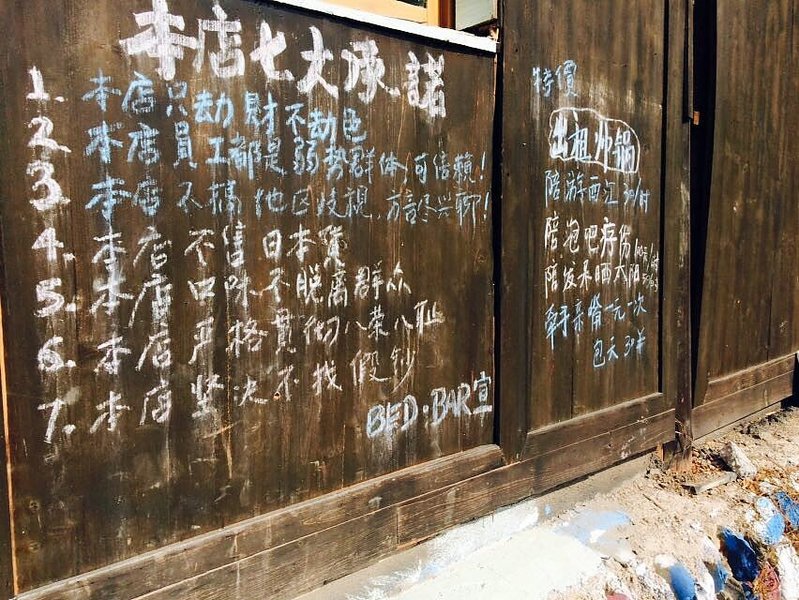 本店七大承諾
1. 本店只劫財不劫色
2. 本店員工都是弱势群体,可信賴!
3. 本店不搞地区歧視,方言尽兴聊!
4. 本店不售日本貨
5. 本店口味不脱离群众
6. 本店严格贯彻八荣八耻
7. 本店坚决不找假钞
BED·BAR宣
特價
出租帅锅
陪游西江30/时
陪泡吧疗伤
陪发呆晒太阳
牵手亲嘴一元一次
包天